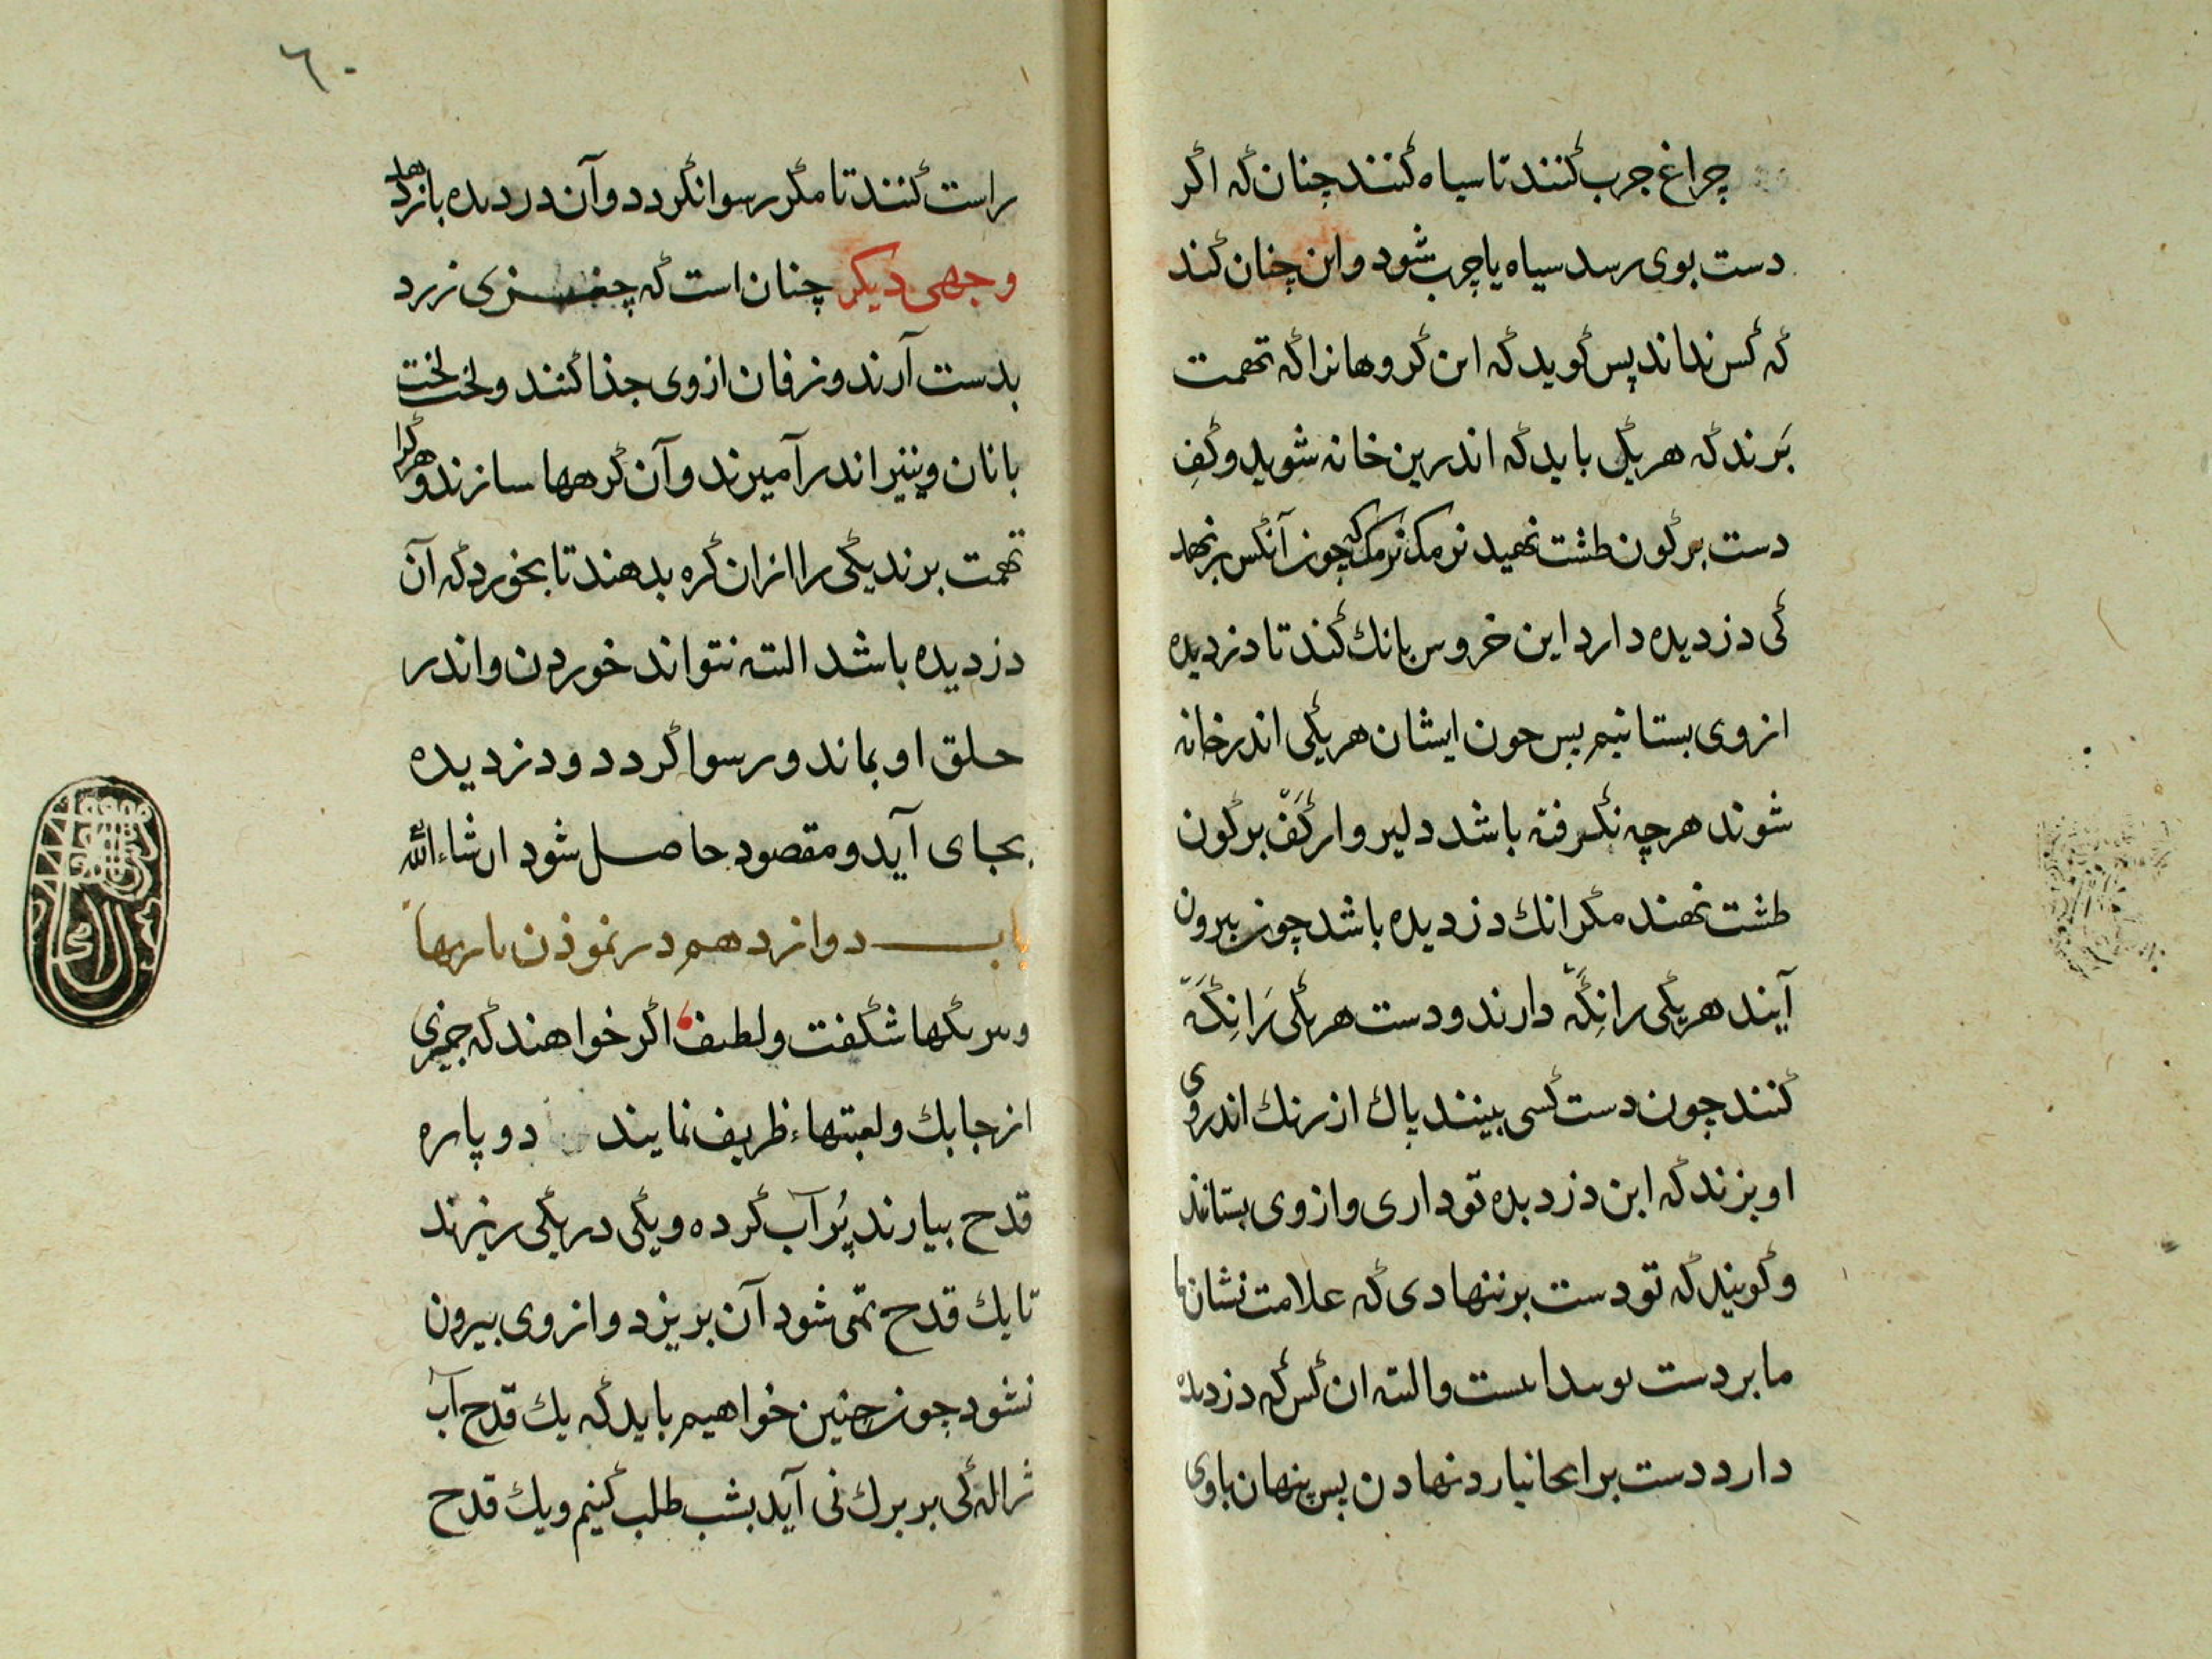 چراغ جرب کنند تا سیاه کنند چنان که اکر
دست بوی رسد سیاه یا چرب شود و این چنان کند
که کس نداند پس کوید که این کروهانرا که تهمت
بَرند که هر یکی باید که اندرین خانه شوید و کفِ
دست بر کون طشت نهید نرمک نرمک که چون آنکس بر نهد
کی دزدیده دارد این خروس بانك کند تا دزدیده
از وی بستانیم پس حون ایشان هر یکی اندر خانه
شوند هر چه نکرفته باشد دلیروار کَفّ بر کون
طشت نهند مکر انك دزدیده باشد چون بیرون
آیند هر یکی را نِکَه دارند و دست هر یکی رَا نِکَه
کنند چون دست کسی بینند پاك از رنك اندر وی
او بزند که این دزدیده تو داری و از وی بستاند
و کویند که تو دست بر ننهادی که علامت نشان ما
ما بر دست تو پیدا نیست والبته ان کس که دزدیده
دارد دست بر انجا نیارد نهادن پس پنهان با وی
٦٠
راست کنند تا مکر رسوا نکردد و آن دزدیده باز دهد
وجهی دیکر چنان است که چغزی زرد
بدست آرند و زفان از وی جذا کنند و لخت لخت
با نان و پنیر اندر آمیزند و آن کرهها سازند و هر کرا
تهمت برند یکی را از ان کره بدهند تا بخورد که آن
دزدیده باشد البته نتواند خوردن و اندر
حلق او بماند و رسوا کردد و دزدیده
بجای آید و مقصود حاصل شود ان شاء الله
باب دوازدهم در نموذن بازیها
و نیرنکها شکفت و لطیف اکر خواهند که چیزی
از جابك و لعبتهاء ظریف نمایند دو پاره
قدح بیارند پُر آب کرده و یکی در یکی ریزند
تا یك قدح تهی شود آن بریزد و از وی بیرون
نشود چون چنین خواهیم باید که یك قدح آب
ژاله کی بر برك نی آید بشب طلب کنیم و یك قدح